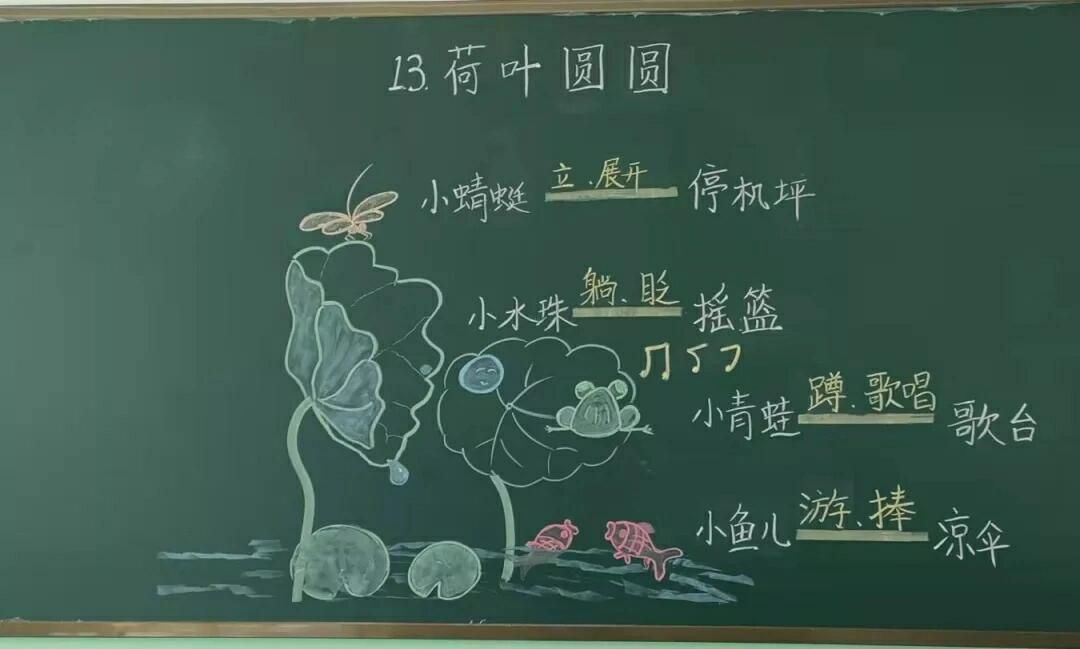 13.荷叶圆圆
小蜻蜓 立.展开 停机坪
小水珠 躺.眨 摇篮
小青蛙 蹲.歌唱 歌台
小鱼儿 游、捧 凉伞